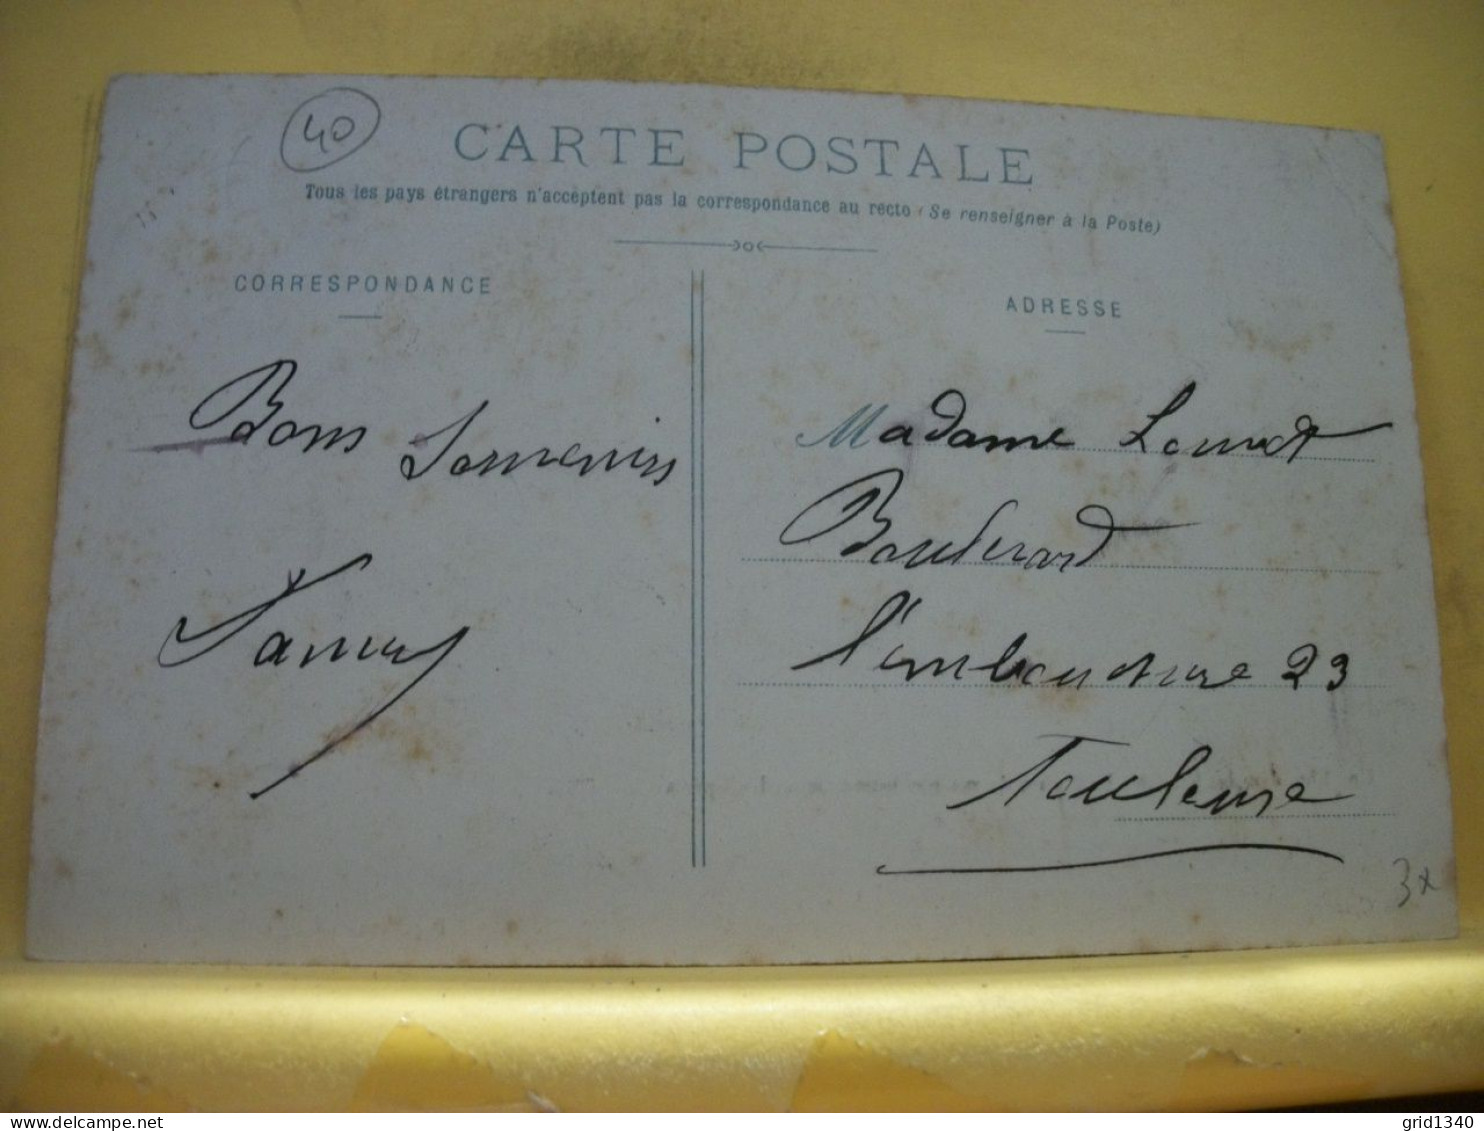 40
CARTE POSTALE
Tous les pays étrangers n'acceptent pas la correspondance au recto (Se renseigner à la Poste)
CORRESPONDANCE
ADRESSE
Bons Souvenirs
Madame
Boulevard
l'embouchure 23
Toulouse
3x
delcampe.net
grid1340